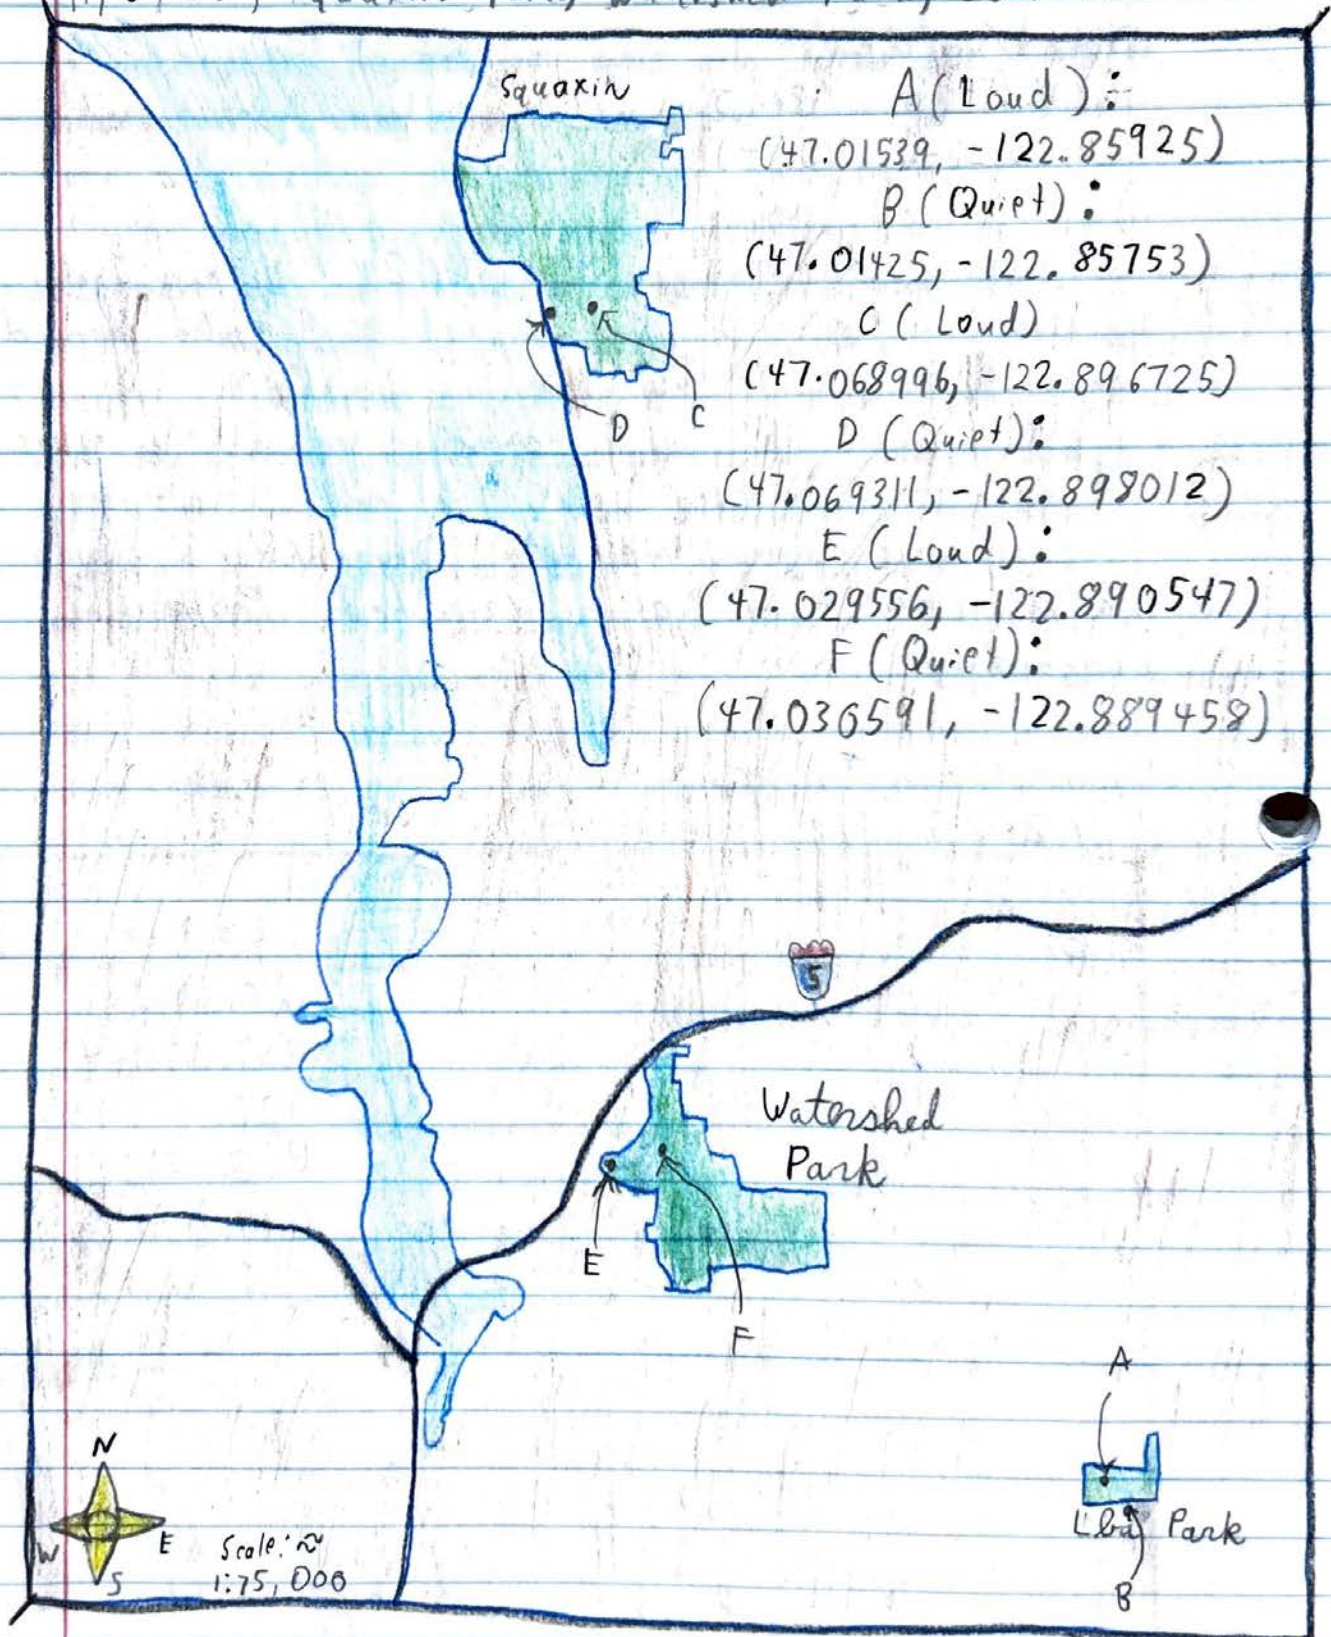 Squaxin
A (Loud):
(47.01539, -122.85925)
B (Quiet):
(47.01425, -122.85753)
C (Loud)
(47.068996, -122.896725)
D (Quiet):
(47.069311, -122.898012)
E (Loud):
(47.029556, -122.890547)
F (Quiet):
(47.036591, -122.889458)
D
C
5
Watershed
Park
E
F
A
Lba Park
B
N
W E
S
Scale: ≈
1:75,000